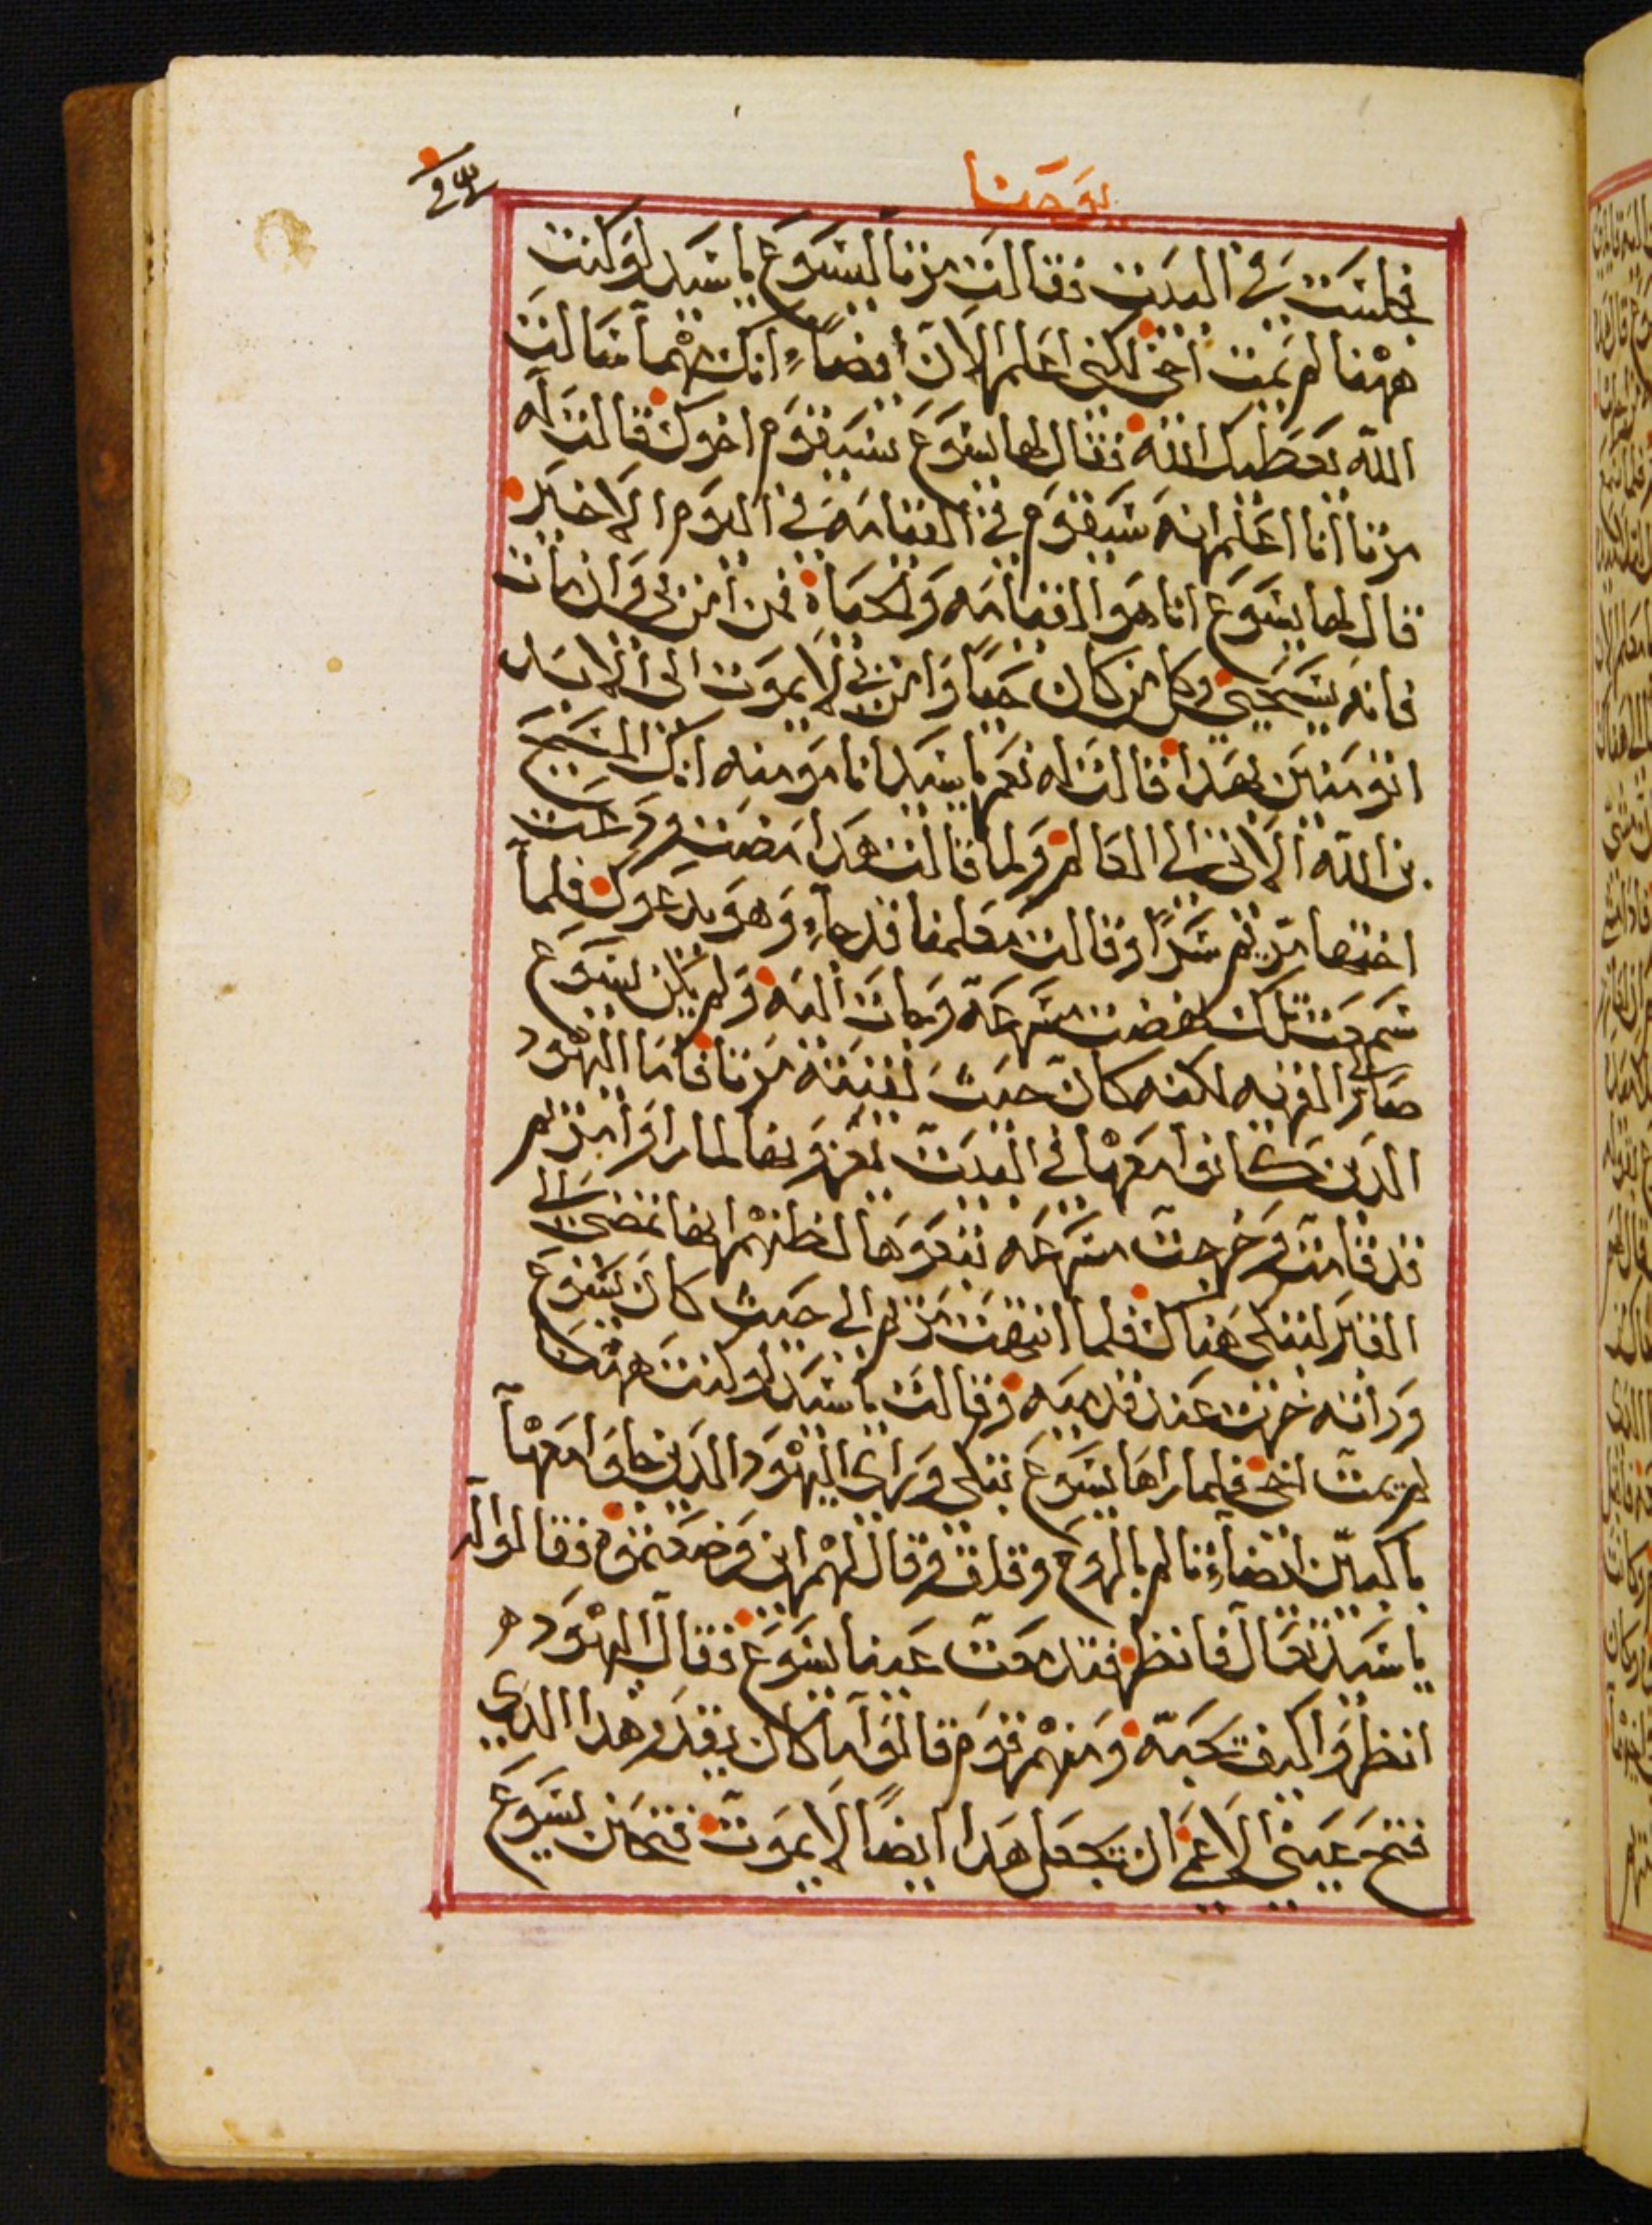 يوحنا
فجلست في البيت فقالت مرتا ليسوع يا سيد لو كنت
ههنا لم يمت اخي لكني اعلم الان ايضاً انك مهما سالت
الله يعطيك الله فقال لها يسوع سيقوم اخوك قالت له
مرتا انا اعلم انه سيقوم في القيامة في اليوم الاخير
قال لها يسوع انا هو القيامه والحياة فمن امن بي وان مات
فانه سيحيى وكل من كان حياً وامن بي لا يموت الى الابد
اتؤمنين بهدا قالت له نعم يا سيد انا مومنه انك المسيح
بن الله الاتي الى العالم ولما قالت هدا مضت ودعت
اختها مريم سراً وقالت معلمنا قد جاء وهو يدعوك فلما
سمعت تلك نهضت مسرعة وجات اليه ولم يكن يسوع
صار الى القريه لكنه كان حيث لقيته مرتا فاما اليهود
الدين كانوا معها في البيت يعزونها لما راوا مريم
قد قامت وخرجت مسرعه تبعوها لظنهم انها تمضي الى
القبر لتبكي هناك فلما انتهت مريم الى حيث كان يسوع
وراته خرت عند قدميه وقالت يا سيد لو كنت ههنا
لم يمت اخي فلما راها يسوع تبكي وراى اليهود الدين جاوا معها
باكيين ايضاء تالم بالروح وقلق وقال لهم اين وضعتموه فقالوا له
يا سيد تعال فانظر فدمعت عينا يسوع فقال اليهود
انظروا كيف يحبه ومنهم قوم قالوا اما كان يقدر هدا الدي
فتح عيني الاعمى ان يجعل هدا ايضاً لا يموت فتحنن يسوع